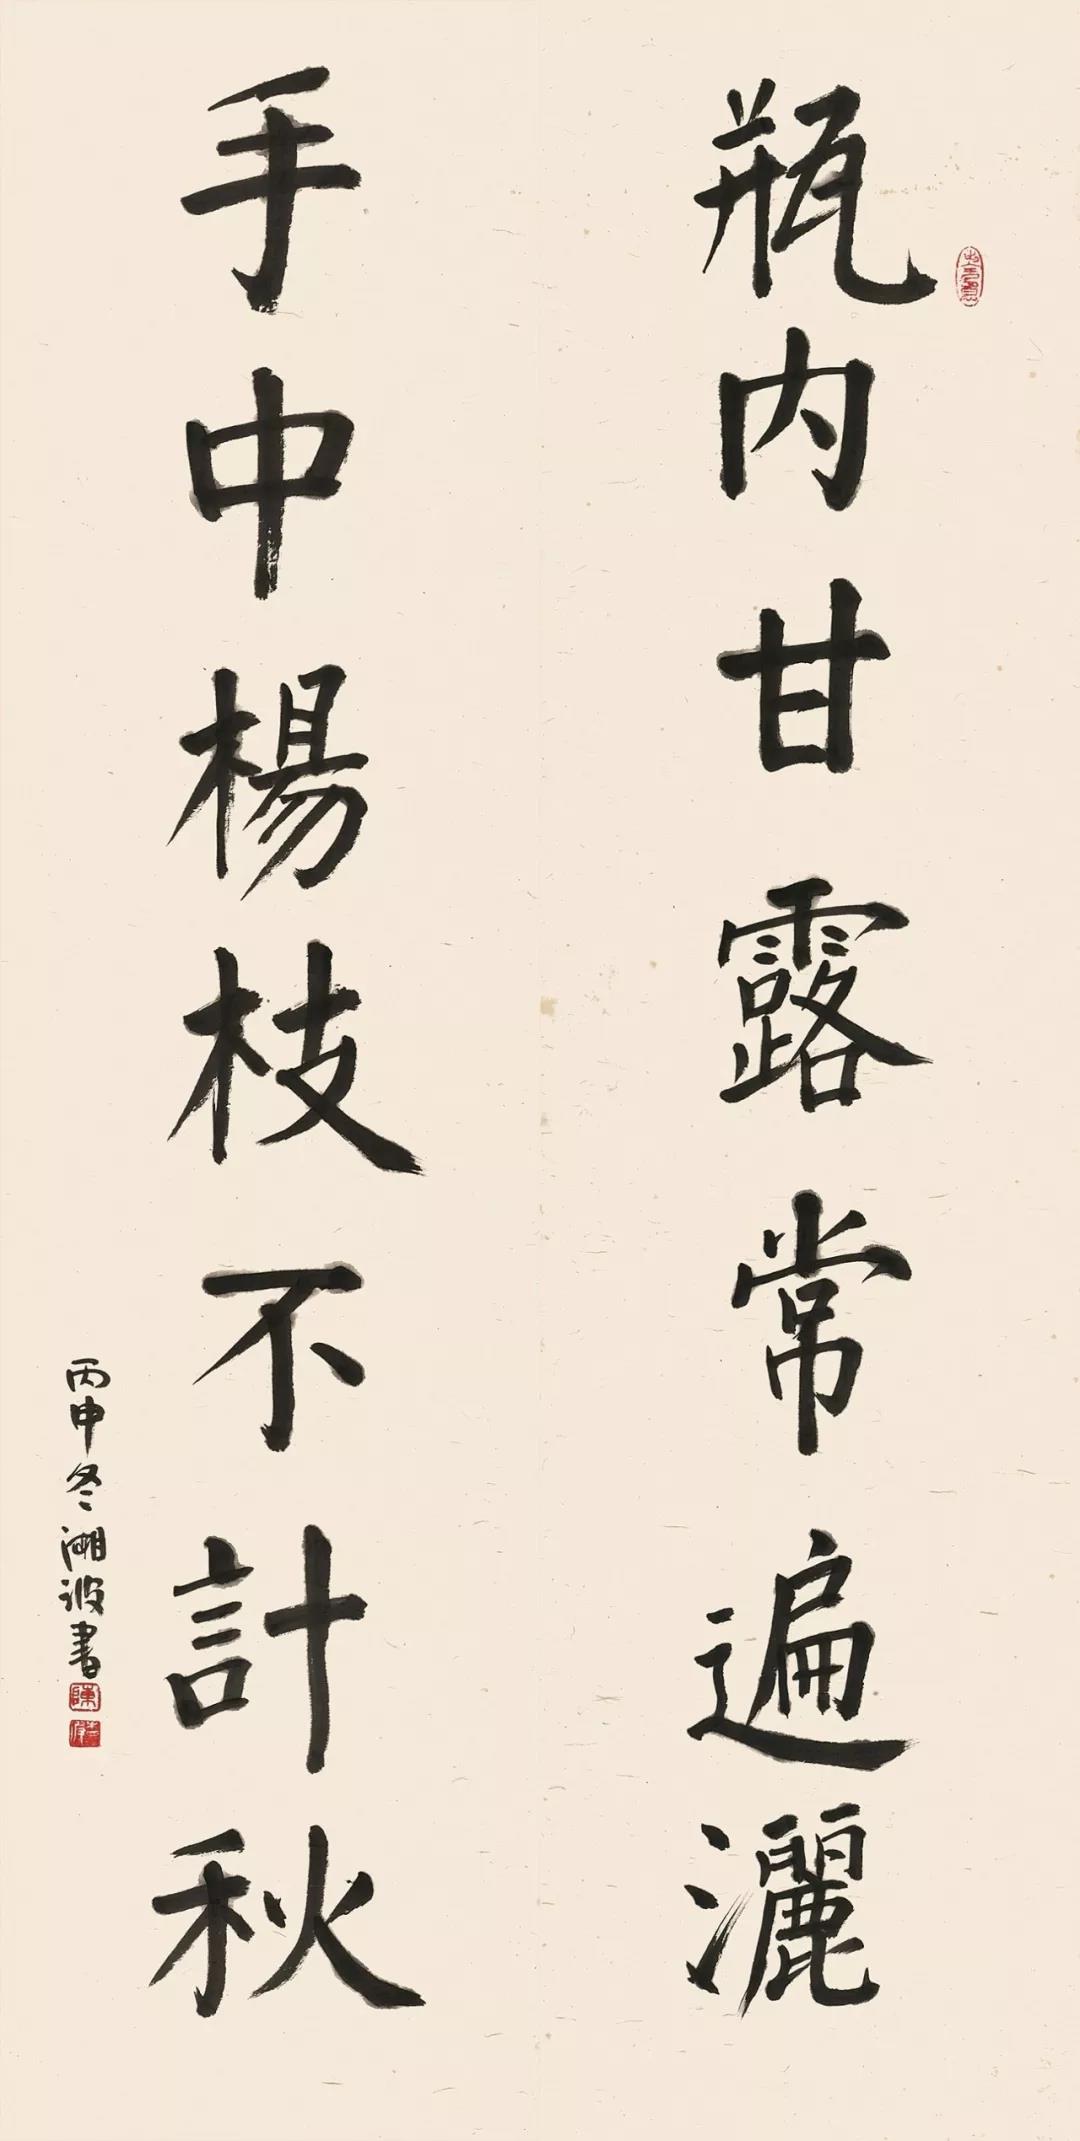 瓶内甘露常遍灑
手中楊枝不計秋
丙申冬湘波書